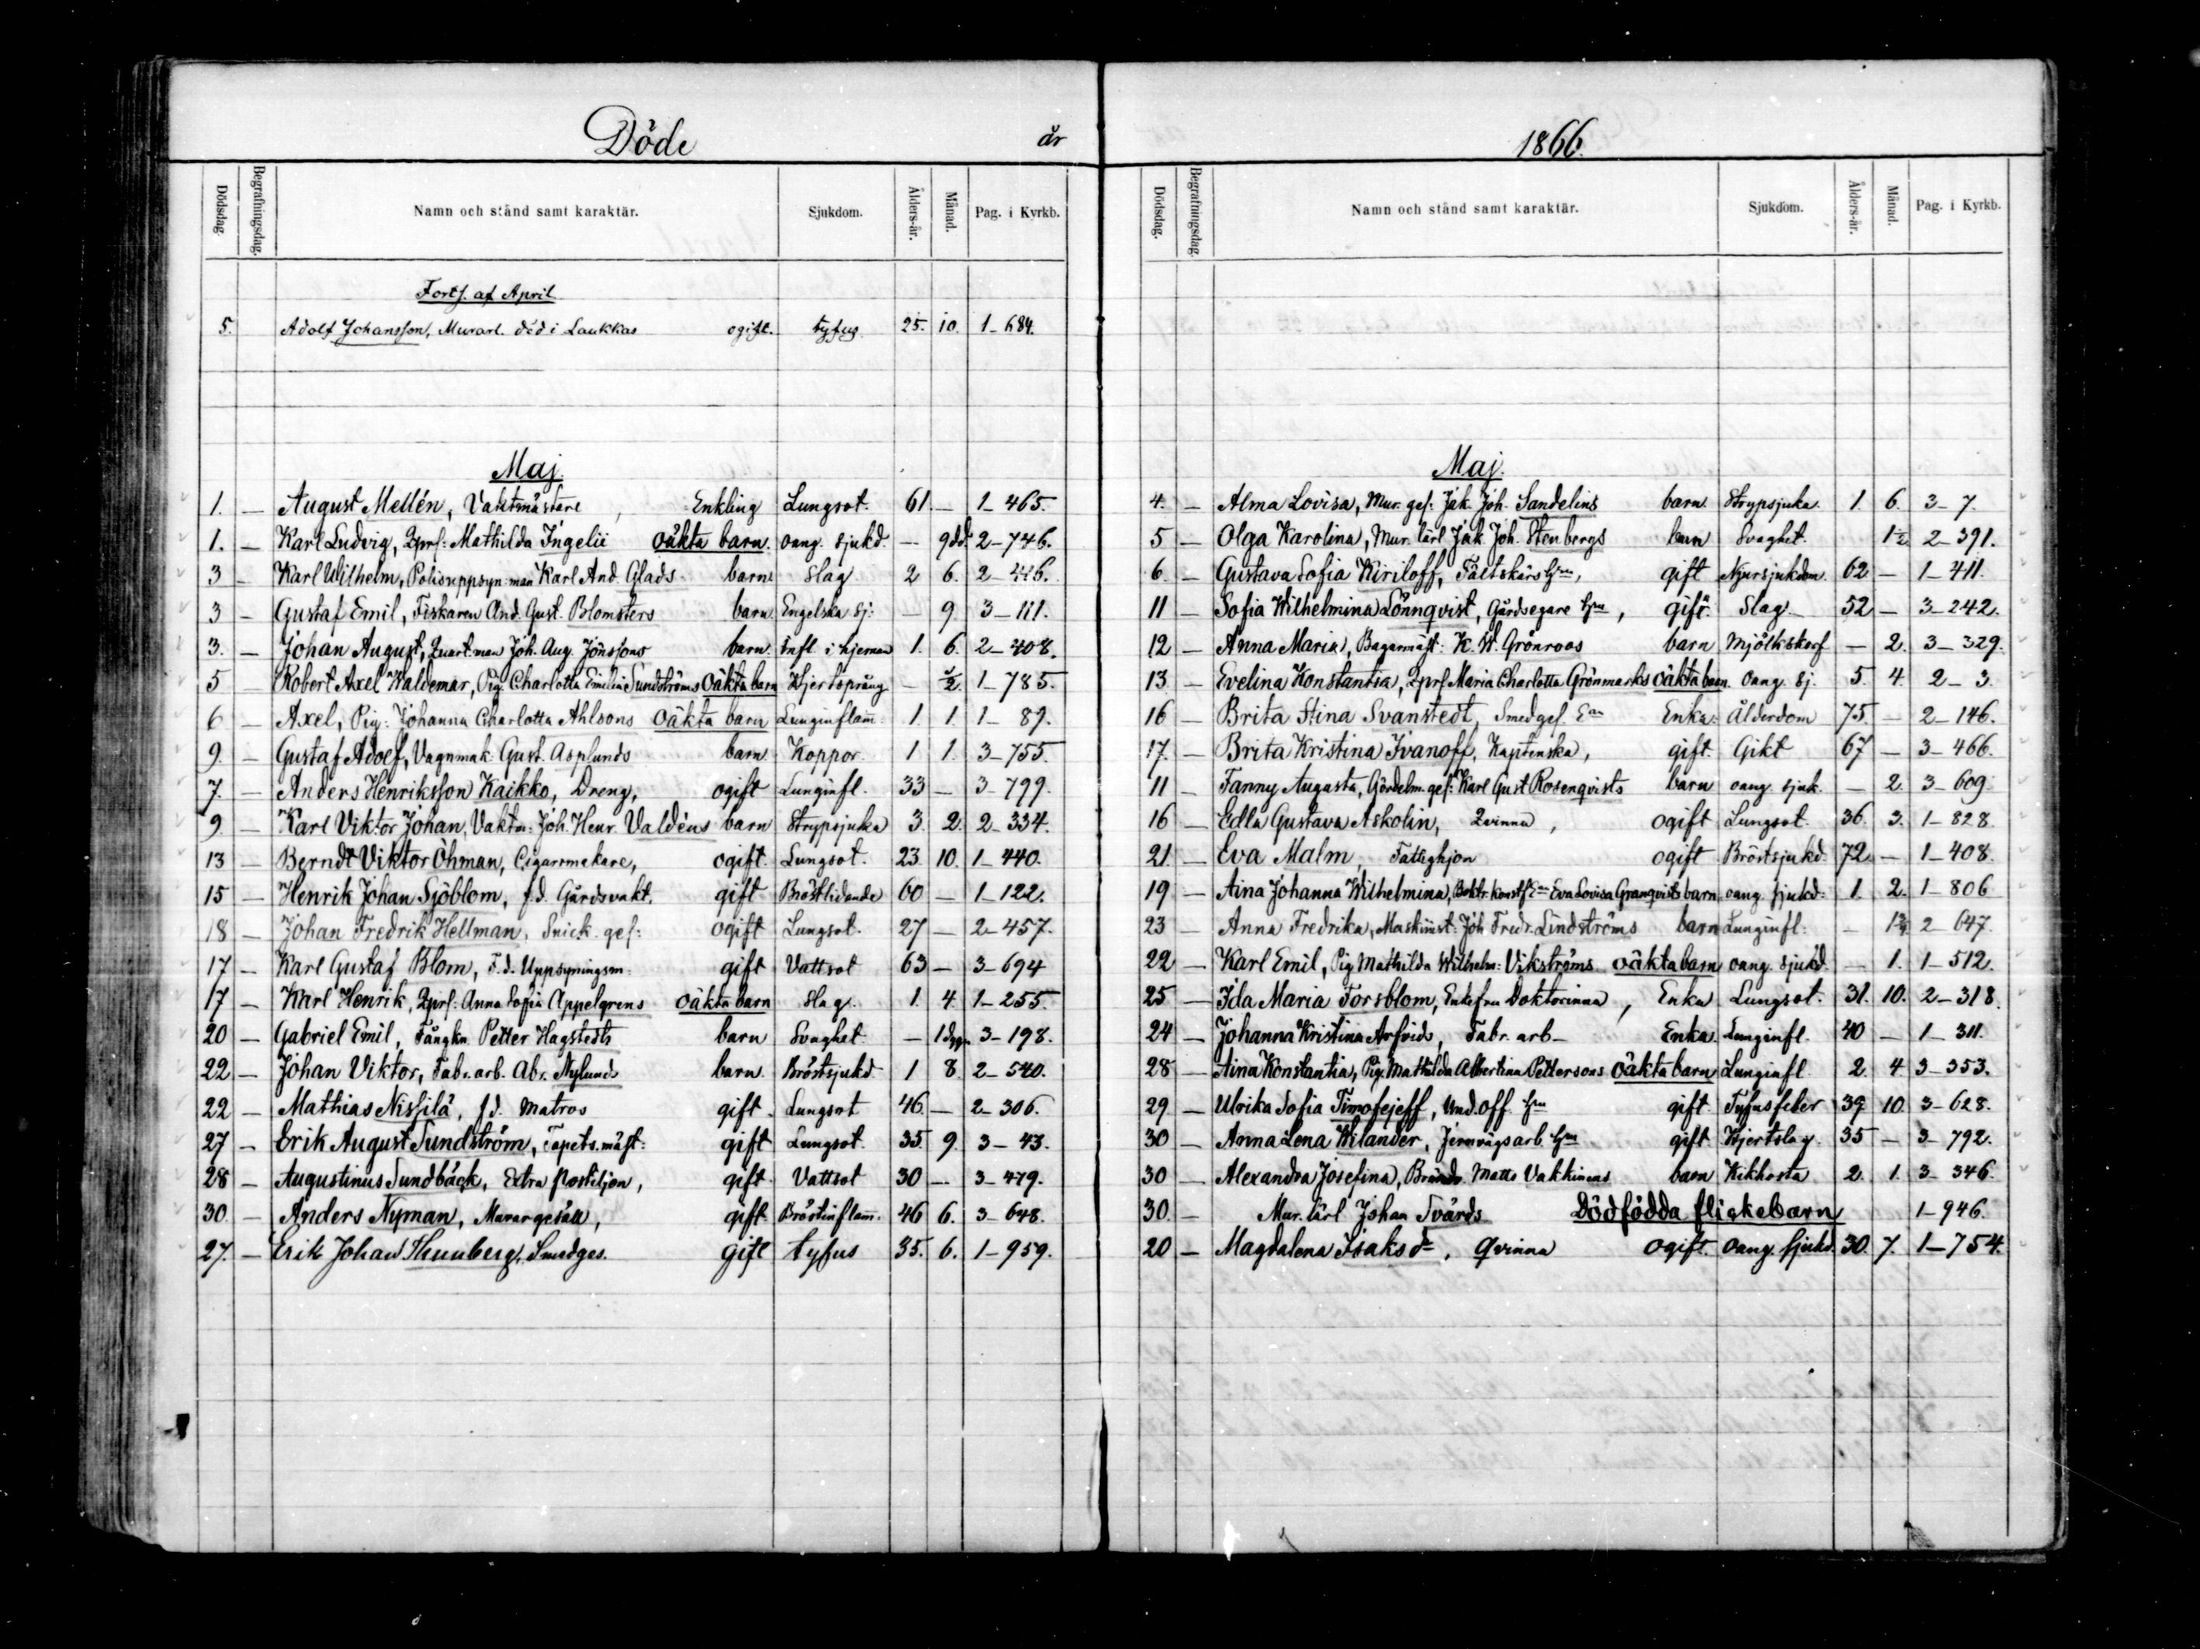 Döde år
Dödsdag. Begrafningsdag. Namn och stånd samt karaktär. Sjukdom. Ålders-år. Månad. Pag. i Kyrkb.
Forts. af April
5. Adolf Johansson, Murarl. död i Laukkas ogift. tyfus 25. 10. 1-684.
Maj.
1. — August Mellén, Vaktmästare, Enkling Lungsot. 61. — 1-465.
1. — Karl Ludvig, Qprs: Mathilda Ingelii oäkta barn. oang. sjukd. — 9dd. 2-746.
3 — Karl Wilhelm, Polisuppsyn: man Karl And. Glads barn Slag 2 6. 2-446.
3 — Gustaf Emil, Fiskaren And. Gust. Blomsters barn Engelska sj: — 9. 3-111.
3. — Johan August, Quart.man Joh. Aug. Jönssons barn. Infl. i hjernan 1. 6. 2-408.
5 — Robert Axel Waldemar, Pig. Charlotta Emilia Sundströms Oäkta barn Hjertsprång — ½ 1-785.
6 — Axel, Pig: Johanna Charlotta Ahlsons Oäkta barn Lunginflam: 1. 1. 1-89.
9. — Gustaf Adolf, Vagnmak. Gust. Asplunds barn. Koppor. 1 1. 3-755.
7. — Anders Henriksson Kaikko, Dreng, ogift Lunginfl. 33 — 3-799.
9 — Karl Viktor Johan, Vaktm: Joh. Henr. Valdéns barn Strypsjuka 3. 2. 2-334.
13 — Berndt Viktor Öhman, Cigarrmakare, ogift. Lungsot. 23. 10. 1-440.
15 — Henrik Johan Sjöblom, f.d. Gårdsvakt. gift Bröstlidande 60 — 1-122.
18 — Johan Fredrik Hellman, Snick. ges: Ogift Lungsot. 27 — 2-457.
17 — Karl Gustaf Blom, F.d. Uppsyningsm. gift Vattsot 63 — 3-694
17 — Karl Henrik, Qprs: Anna Sofia Appelgrens oäkta barn Slag. 1. 4. 1-255.
20 — Gabriel Emil, Fångkn. Petter Hagstedts barn Svaghet — 1 dygn 3-198.
22 — Johan Viktor, Fabr. arb. Abr. Nylunds barn. Bröstsjukd 1 8. 2-540.
22 — Mathias Nissilä, f.d. Matros gift. Lungsot 46. — 2-306.
27 — Erik August Sundström, Tapets.mäst: gift Lungsot. 35 9. 3-43.
28 — Augustinus Sundbäck, Extra Postiljon, gift. Vattsot 30 — 3-479.
30. — Anders Nyman, Murargesäll, gift. Bröstinflam. 46 6. 3-648.
27. — Erik Johan Thunberg, Smedges. gift tyfus 35. 6. 1-959.
1866.
Dödsdag. Begrafningsdag. Namn och stånd samt karaktär. Sjukdom. Ålders-år. Månad. Pag. i Kyrkb.
Maj.
4. — Alma Lovisa, Mur. ges: Jak. Joh. Sandelins barn. Strypsjuka. 1. 6. 3-7.
5 — Olga Karolina, Mur. lärl Jak. Joh. Stenbergs barn Svaghet. 1½ 2-391.
6. — Gustava Sofia Kiriloff, Fältskärs Hru, gift Njursjukdom. 62 — 1-411.
11 — Sofia Wilhelmina Lönnqvist, Gårdsegare Hru, gift. Slag 52 — 3-242.
12 — Anna Maria, Bagarmäst: K. W. Grönroos barn Mjölkskorf — 2. 3-329.
13. — Evelina Konstantia, Qprs Maria Charlotta Grönmarks oäkta barn. oang. sj. 5. 4. 2-3.
16 — Brita Stina Svanstedt, Smedges. Ean Enka: Ålderdom 75. — 2-146.
17. — Brita Kristina Ivanoff, Kaptenska, gift. Gikt 67 — 3-466.
11 — Fanny Augusta, Gördelm. ges: Karl Gust Rosenqvists barn oang. sjuk. — 2. 3-609.
16 — Edla Gustava Askolin, Qvinna, ogift Lungsot. 36. 3. 1-828.
21. — Eva Malm, Fattighjon ogift Bröstsjukd. 72 — 1-408.
19 — Aina Johanna Wilhelmina, Eva Lovisa Granqvists barn. oang. sjukd: 1. 2. 1-806
23 — Anna Fredrika, Maskinist: Joh Fredr. Lindströms barn Lunginfl: — 2-647.
22 — Karl Emil, Pig Mathilda Wilhelm: Vikströms oäkta barn oang. sjukd. — 1. 1-512.
25 — Ida Maria Forsblom, Enkefru Doktorinna, Enka Lungsot. 31. 10. 2-318.
24 — Johanna Kristina Arfvids, Fabr. arb — Enka Lunginfl. 40 — 1-311.
28 — Aina Konstantia, Pig. Mathilda Albertina Pettersons oäkta barn Lunginfl. 2. 4 3-353.
29. — Ulrika Sofia Timofejeff, Und.off. Hru gift Tyfusfeber 39 10. 3-628.
30 — Anna Lena Wilander, Jernvägsarb. Hru gift Hjertslag. 35 — 3-792.
30 Alexandra Josefina, Matts Vakkinens barn Kikhosta 2. 1. 3-346.
30. — Mur. lärl Johan Svärds Dödfödda flickebarn 1-946.
20 — Magdalena Isaks dr, Qvinna ogift. Oang. sjukd. 30. 7. 1-754.